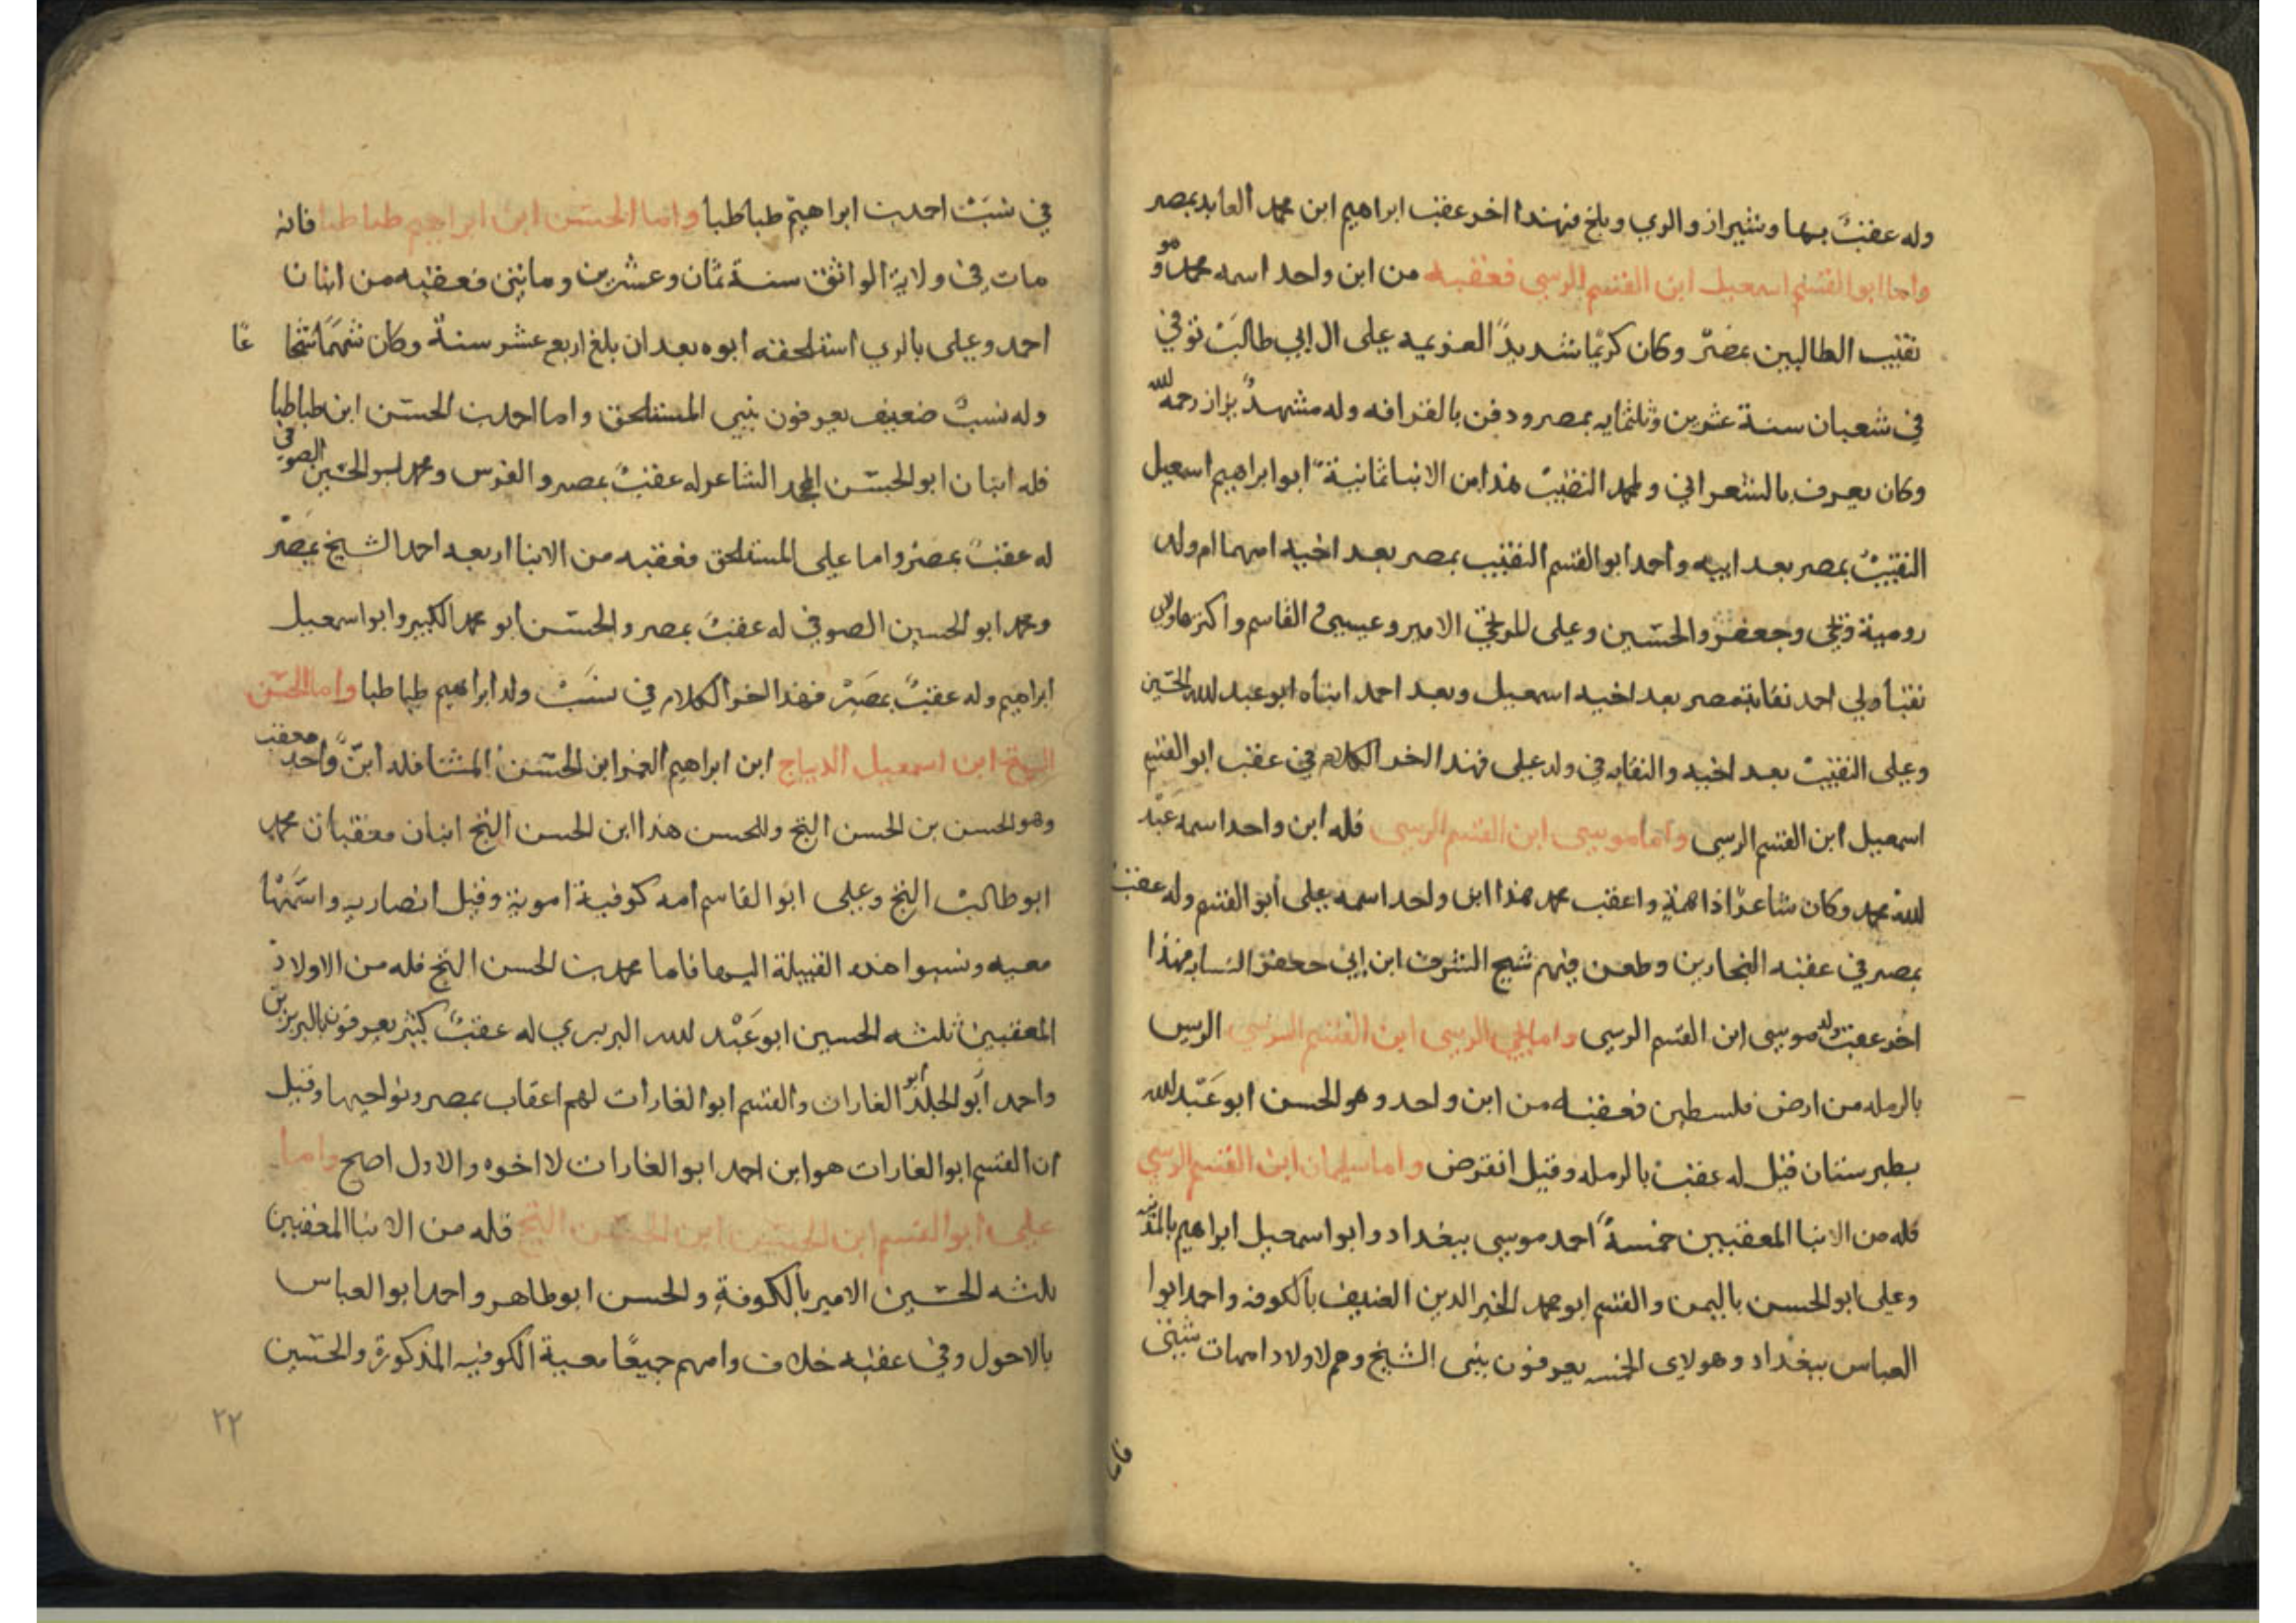 وله عقبٌ بها وشيراز والري وبلخ فهذا اخر عقب ابراهيم ابن محمد العابد بمصر
واما ابو القسم اسمعيل ابن القسم الرسي فعقبه من ابن واحد اسمه محمد وهو
نقيب الطالبين بمصر وكان كريمًا شديد العزيمه على ال ابي طالب توفي
في شعبان سنة عشرين وثلثمايه بمصر ودفن بالقرافه وله مشهدٌ يزار رحمه الله
وكان يعرف بالشعراني ولمحمد النقيب هذا من الابنا ثمانية ابو ابراهيم اسمعيل
النقيب بمصر بعد ابيه واحمد ابو القسم النقيب بمصر بعد اخيه امهما ام ولد
رومية ويحيى وجعفر والحسين وعلى الامير وعيسى والقاسم واكثرهم اولاد
نقبا ولي احمد نقابة مصر بعد اخيه اسمعيل وبعد احمد ابناه ابو عبد الله الحسين
وعلى النقيب بعد اخيه والنقابه في ولد على فهذا اخر الكلام في عقب ابو القسم
اسمعيل ابن القسم الرسي واما موسى ابن القسم الرسي فله ابن واحد اسمه عبد
الله محمد وكان شاعرًا ذا همةٍ واعقب محمد هذا ابن واحد اسمه على ابو القسم وله عقب
بمصر في عقبه النجارين وطعن فيهم شيخ الشرف ابن ابي جعفر النسابه فهذا
اخر عقب ولد موسى ابن القسم الرسي واما يحيى الرسي ابن القسم الرسي الريس
بالرمله من ارض فلسطين فعقبه من ابن واحد وهو الحسن ابو عبد الله
بطبرستان قيل له عقب بالرمله وقيل انقرض واما سليمان ابن القسم الرسي
فله من الابنا المعقبين خمسة احمد موسى ببغداد وابو اسمعيل ابراهيم
وعلى ابو الحسن باليمن والقسم ابو محمد الدين بالكوفه واحمد ابوا
العباس ببغداد وهولاى الخمسه يعرفون ببنى الشيخ وهم لاولاد امهات شتى
فاما
في نسب احمد بن ابراهيم طباطبا واما الحسن ابن ابراهيم طباطبا فانه
مات في ولاية الواثق سنة ثمان وعشرين ومايتي فعقبه من ابنان
احمد وعلى بالري استلحقه ابوه بعد ان بلغ اربع عشر سنة وكان شهمًا شجاعًا
وله نسبٌ ضعيف يعرفون ببني المستلحق واما احمد بن الحسن ابن طباطبا
فله ابنان ابو الحسن الشاعر له عقب بمصر والقدس ومحمد ابو الحسين الصوفي
له عقب بمصر واما على المستلحق فعقبه من الابنا اربعه احمد الشيخ بمصر
ومحمد ابو الحسين الصوفي له عقب بمصر والحسن ابو محمد الكبير وابو اسمعيل
ابراهيم وله عقبٌ بمصر فهذا اخر الكلام في نسب ولد ابراهيم طباطبا واما الحسن
التج ابن اسمعيل الديباج ابن ابراهيم الغمر ابن الحسن المثنا فله ابنٌ واحد معقب
وهو الحسن بن الحسن التج وللحسن هذا ابن الحسن التج ابنان معقبان محمد
ابو طالب التج وعلى ابو القاسم امه كوفية اموية وقيل انصاريه واسمها
معيه ونسبوا هذه القبيلة اليها فاما محمد بن الحسن التج فله من الاولاد
المعقبين ثلثه الحسين ابو عبد الله البربري له عقبٌ كثير يعرفون بالبربريين
واحمد ابو ابو الغارات والقسم ابو الغارات لهم اعقاب بمصر ونواحيها وقيل
ان القسم ابو الغارات هو ابن احمد ابو الغارات لا اخوه والاول اصح واما
على ابو القسم ابن الحسن ابن الحسن التج فله من الابنا المعقبين
ثلثه الحسين الامير بالكوفةِ والحسن ابو طاهر واحمد ابو العباس
بالاحول وفي عقبه خلاف وامهم جميعًا معية الكوفيه المذكورة والحسين
٢٢